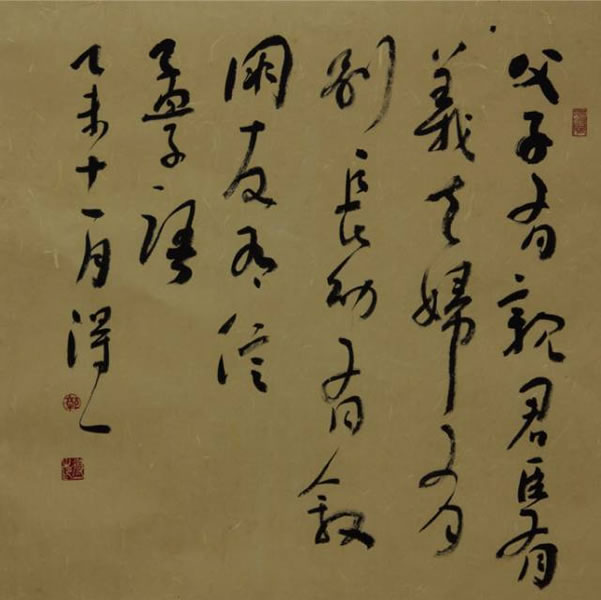 父子有親君臣有
義夫婦有
別長幼有敘
朋友有信
孟子語
乙未十一月得一